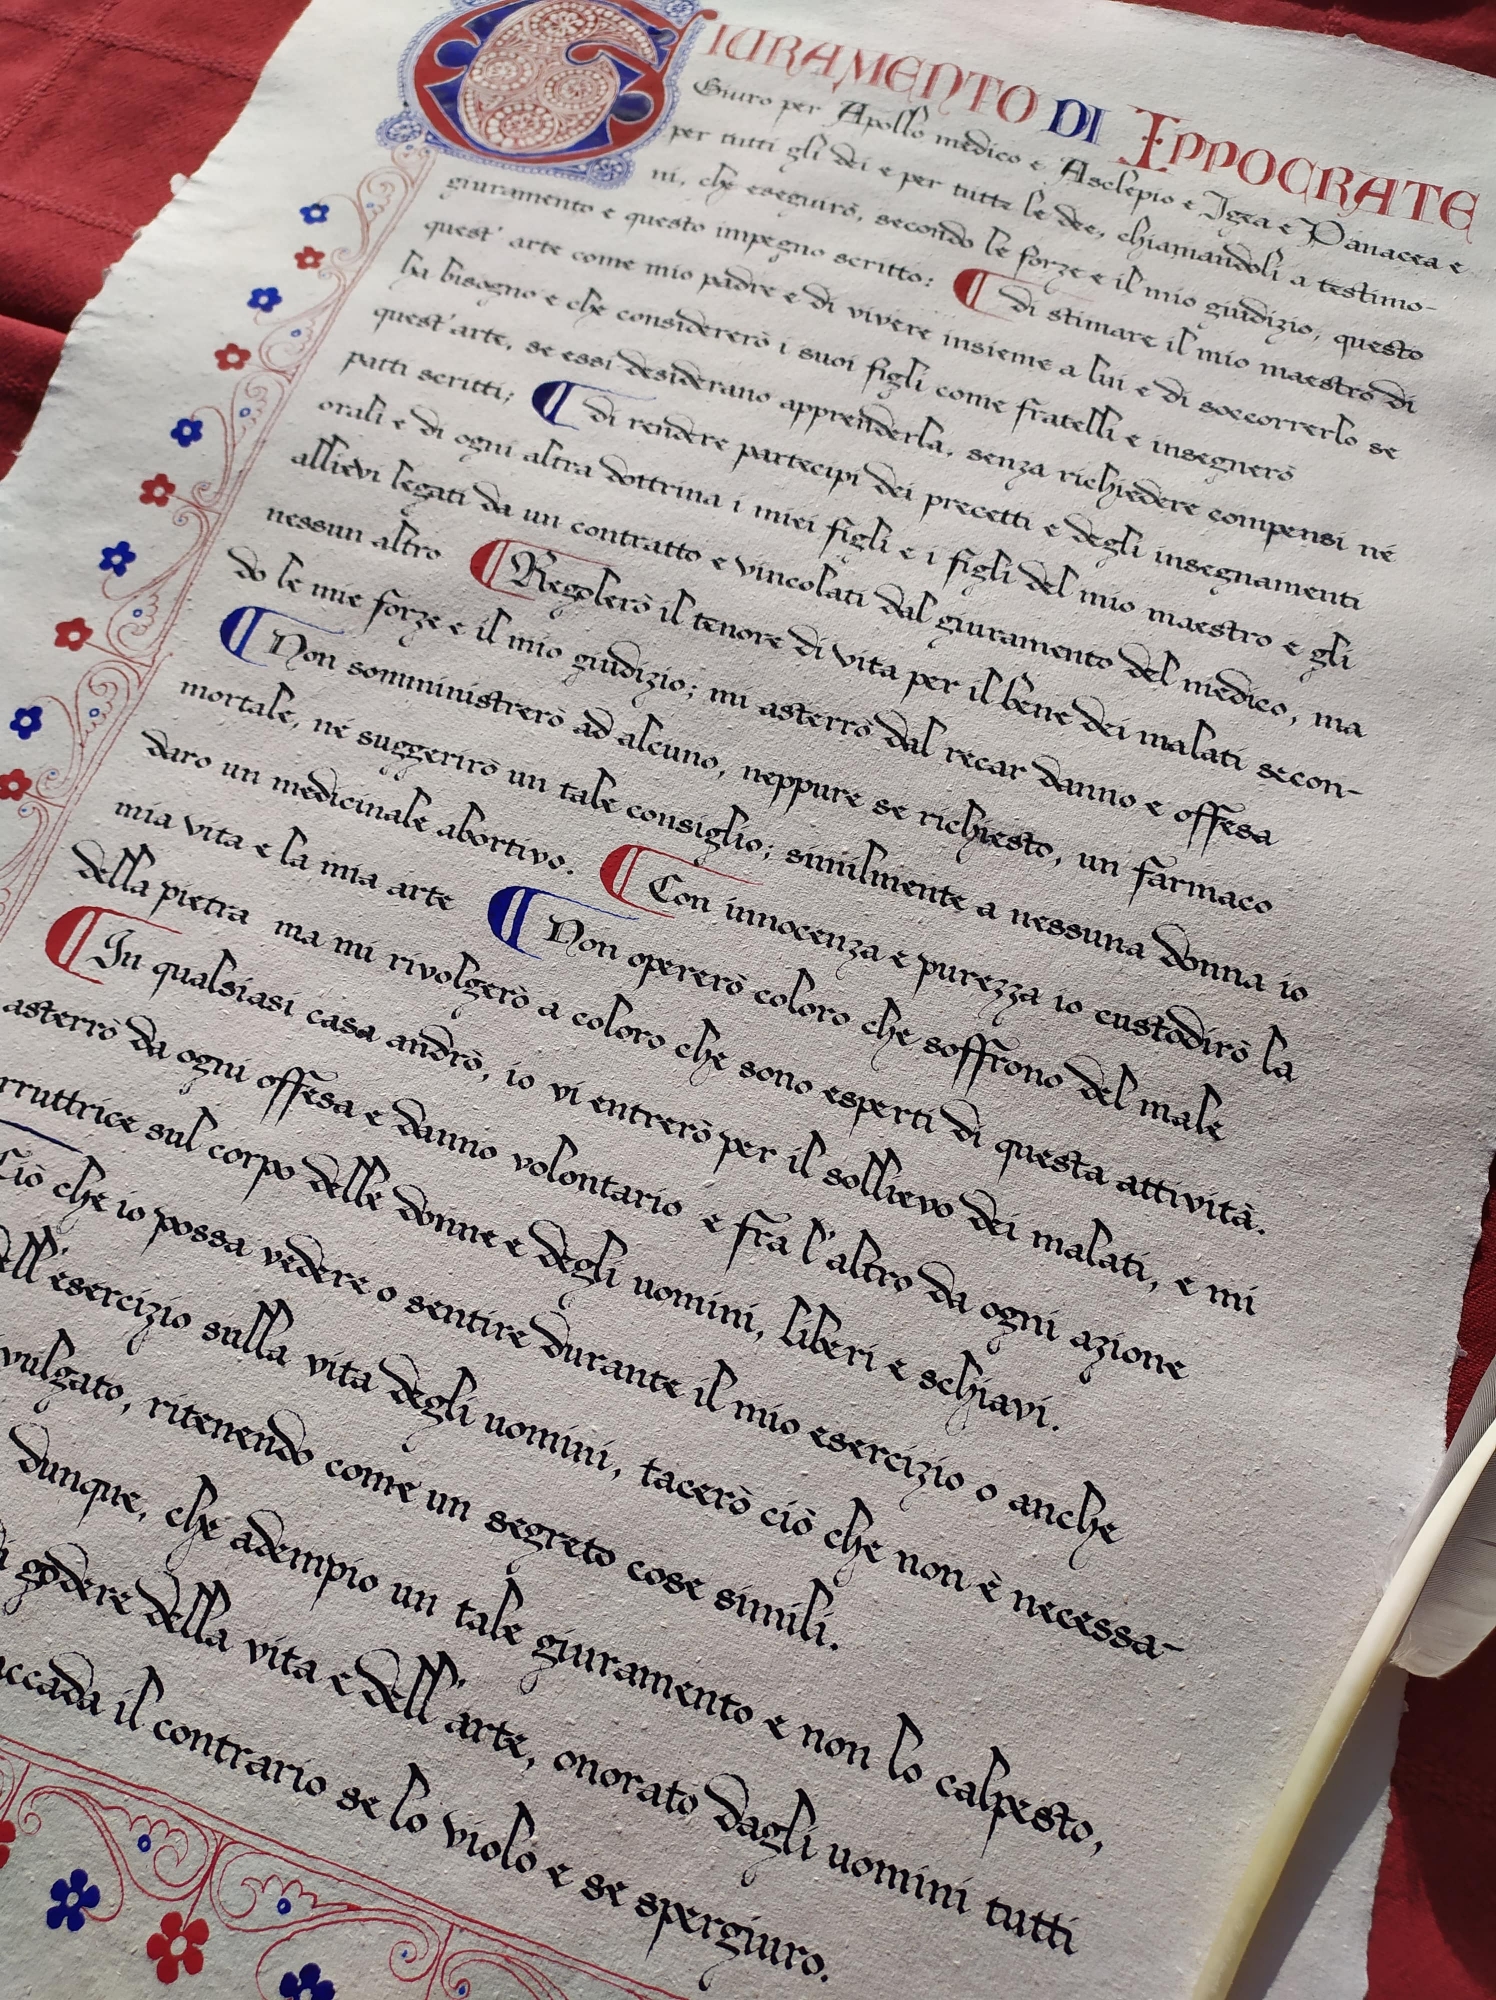 GIURAMENTO DI IPPOCRATE
Giuro per Apollo medico e Asclepio e Igea e Panacea e
per tutti gli dei e per tutte le dee, chiamandoli a testimo-
ni, che eseguirò, secondo le forze e il mio giudizio, questo
giuramento e questo impegno scritto: ¶ di stimare il mio maestro di
quest' arte come mio padre e di vivere insieme a lui e di soccorrerlo se
ha bisogno e che considererò i suoi figli come fratelli e insegnerò
quest'arte, se essi desiderano apprenderla, senza richiedere compensi né
patti scritti; ¶ di rendere partecipi dei precetti e degli insegnamenti
orali e di ogni altra dottrina i miei figli e i figli del mio maestro e gli
allievi legati da un contratto e vincolati dal giuramento del medico, ma
nessun altro ¶ Regolerò il tenore di vita per il bene dei malati secon-
do le mie forze e il mio giudizio; mi asterrò dal recar danno e offesa
¶ Non somministrerò ad alcuno, neppure se richiesto, un farmaco
mortale, né suggerirò un tale consiglio; similmente a nessuna donna io
daro un medicinale abortivo. ¶ Con innocenza e purezza io custodirò la
mia vita e la mia arte ¶ Non opererò coloro che soffrono del male
della pietra ma mi rivolgerò a coloro che sono esperti di questa attività.
¶ In qualsiasi casa andrò, io vi entrerò per il sollievo dei malati, e mi
asterrò da ogni offesa e danno volontario e fra l'altro da ogni azione
rruttrice sul corpo delle donne e degli uomini, liberi e schiavi.
Ciò che io possa vedere o sentire durante il mio esercizio o anche
ell'esercizio sulla vita degli uomini, tacerò ciò che non è necessa-
vulgato, ritenendo come un segreto cose simili.
dunque, che adempio un tale giuramento e non lo calpesto,
godere della vita e dell'arte, onorato dagli uomini tutti
ccada il contrario se lo violo e se spergiuro.